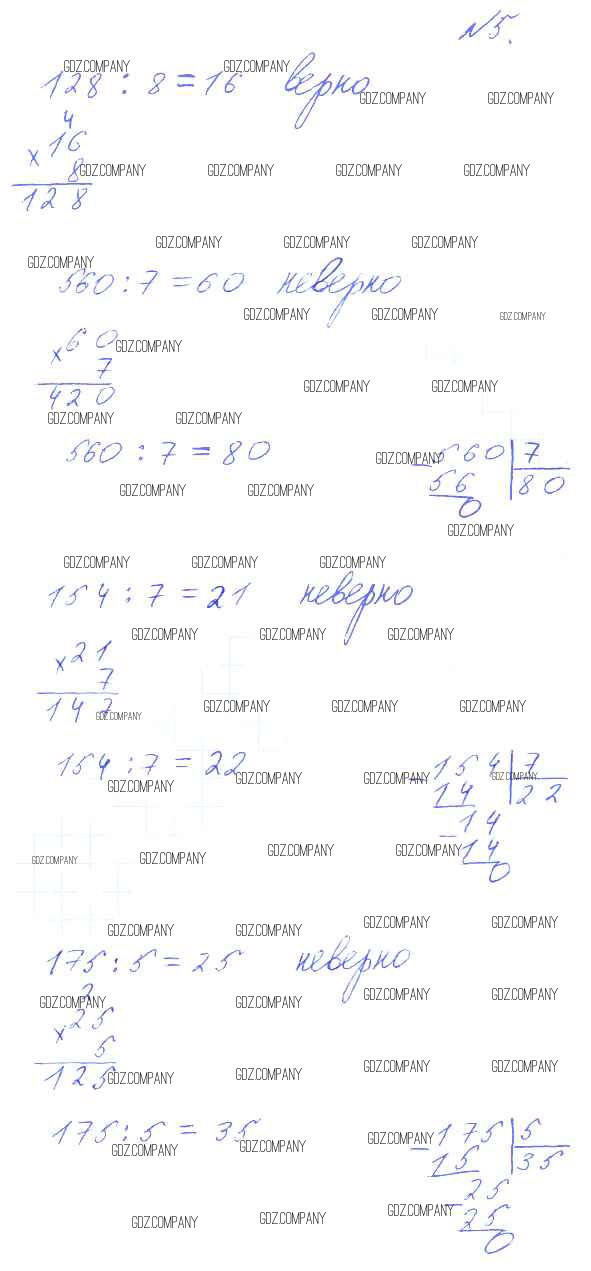 №5.
128 : 8 = 16 верно
4
× 16
8
128
560 : 7 = 60 неверно
× 60
7
420
560 : 7 = 80
– 560 | 7
56 | 80
0
154 : 7 = 21 неверно
× 21
7
147
154 : 7 = 22
– 154 | 7
14 | 22
– 14
14
0
175 : 5 = 25 неверно
2
× 25
5
125
175 : 5 = 35
– 175 | 5
15 | 35
– 25
25
0
GDZ.COMPANY